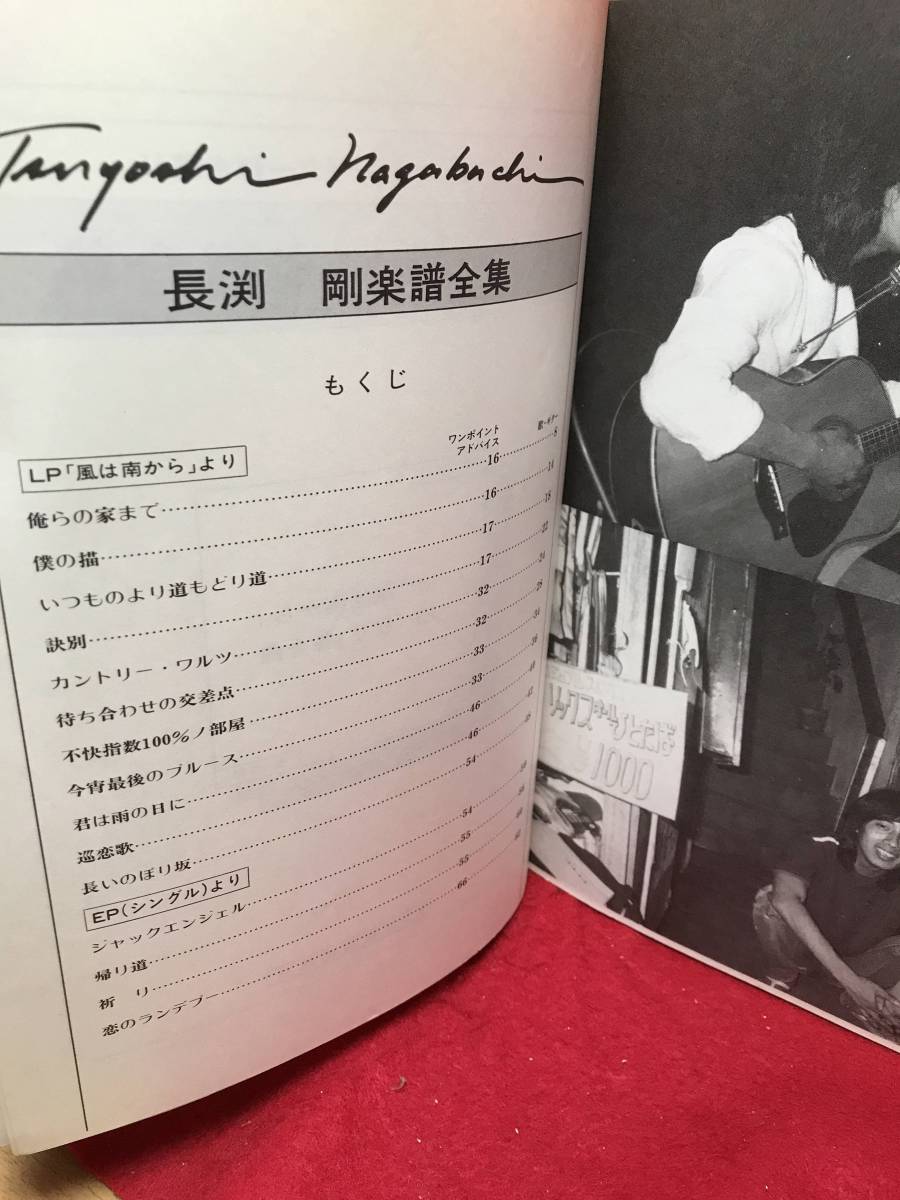 Tsuyoshi Nagabuchi
長渕 剛楽譜全集
もくじ
ワンポイントアドバイス 歌・ギター
LP「風は南から」より
俺らの家まで……16……8
僕の描……16……14
いつものより道もどり道……17……18
訣別……17……22
カントリー・ワルツ……32……24
待ち合わせの交差点……32……28
不快指数100%ノ部屋……33
今宵最後のブルース……33……36
君は雨の日に……46……40
巡恋歌……46……42
長いのぼり坂……54
EP(シングル)より
ジャックエンジェル……54
帰り道……55
祈り……55
恋のランデブー……66
ひとたば
1000